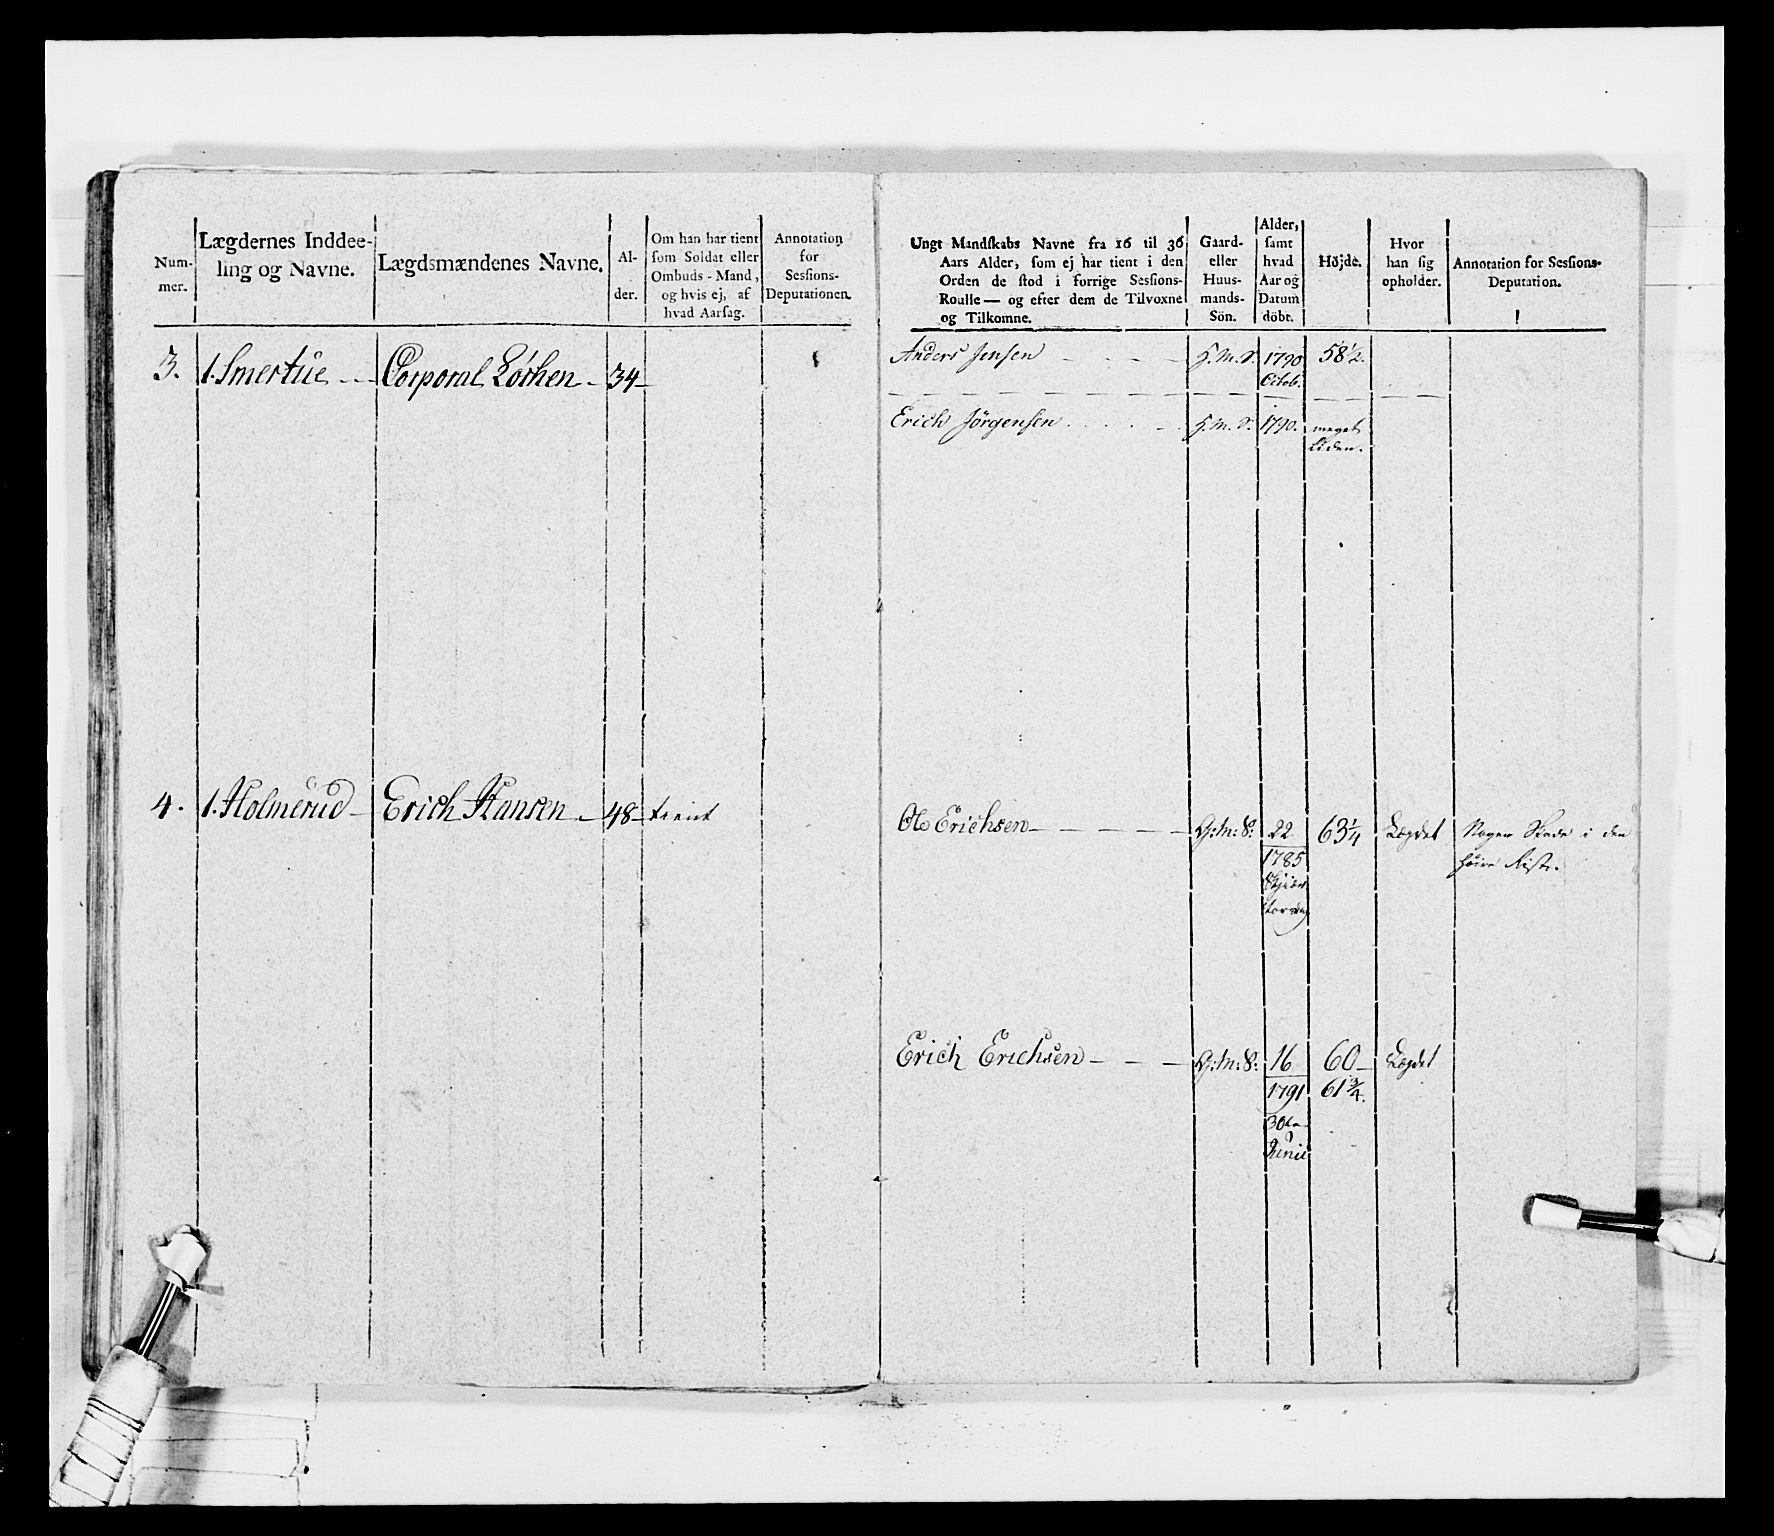 Num-
mer.
Lægdernes Inddee-
ling og Navne.
Lægdsmændenes Navne.
Al-
der.
Om han har tient
som Soldat eller
Ombuds-Mand,
og hvis ej, af
hvad Aarsag.
Annotation
for
Sessions-
Deputationen.
3. 1. Smertue Corporal Løshen 34
4. 1. Holmerud Erich Hansen 48 tient
Ungt Mandskabs Navne fra 16 til 36
Aars Alder, som ej har tient i den
Orden de stod i forrige Sessions-
Roulle — og efter dem de Tilvoxne
og Tilkomne.
Gaard-
eller
Huus-
mands-
Sön.
Alder,
samt
hvad
Aar og
Datum
döbt.
Höjde.
Hvor
han sig
opholder.
Annotation for Sessions-
Deputation.
Anders Jensen H. M. S. 1790 58½.
Octob.
Erich Jörgensen H. M. S. 1790. meget
Liden.
Ole Erichsen G: M: S: 22 63¼ Lægdet Nogen Skade i den
1785 høire Rist.
Erich Erichsen G: M: S: 16 60 Lægdet
1791 61¾.
30te
Junii